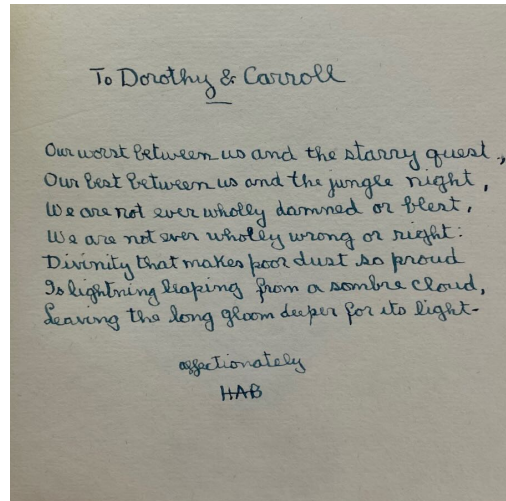 To Dorothy & Carroll
Our worst between us and the starry quest,
Our best between us and the jungle night,
We are not ever wholly damned or blest,
We are not ever wholly wrong or right:
Divinity that makes poor dust so proud
Is lightning leaping from a sombre cloud,
Leaving the long gloom deeper for its light-
affectionately
HAB